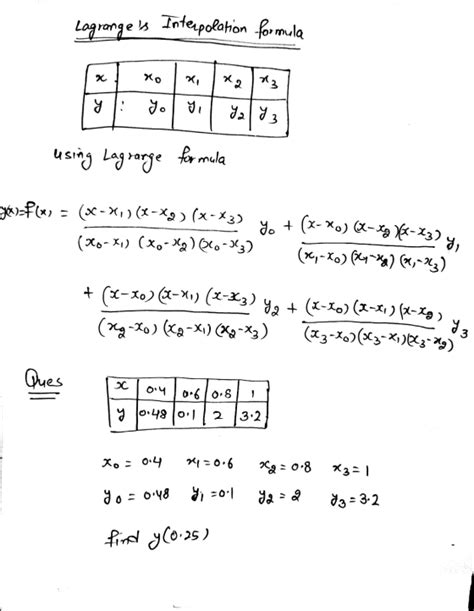 Lagrange's Interpolation formula
x x₀ x₁ x₂ x₃
y : y₀ y₁ y₂ y₃
using Lagrange formula
y(x)=f(x) = (x-x₁)(x-x₂)(x-x₃) / (x₀-x₁)(x₀-x₂)(x₀-x₃) y₀ + (x-x₀)(x-x₂)(x-x₃) / (x₁-x₀)(x₁-x₂)(x₁-x₃) y₁
+ (x-x₀)(x-x₁)(x-x₃) / (x₂-x₀)(x₂-x₁)(x₂-x₃) y₂ + (x-x₀)(x-x₁)(x-x₂) / (x₃-x₀)(x₃-x₁)(x₃-x₂) y₃
Ques
x 0.4 0.6 0.8 1
y 0.48 0.1 2 3.2
x₀ = 0.4 x₁ = 0.6 x₂ = 0.8 x₃ = 1
y₀ = 0.48 y₁ = 0.1 y₂ = 2 y₃ = 3.2
find y(0.25)